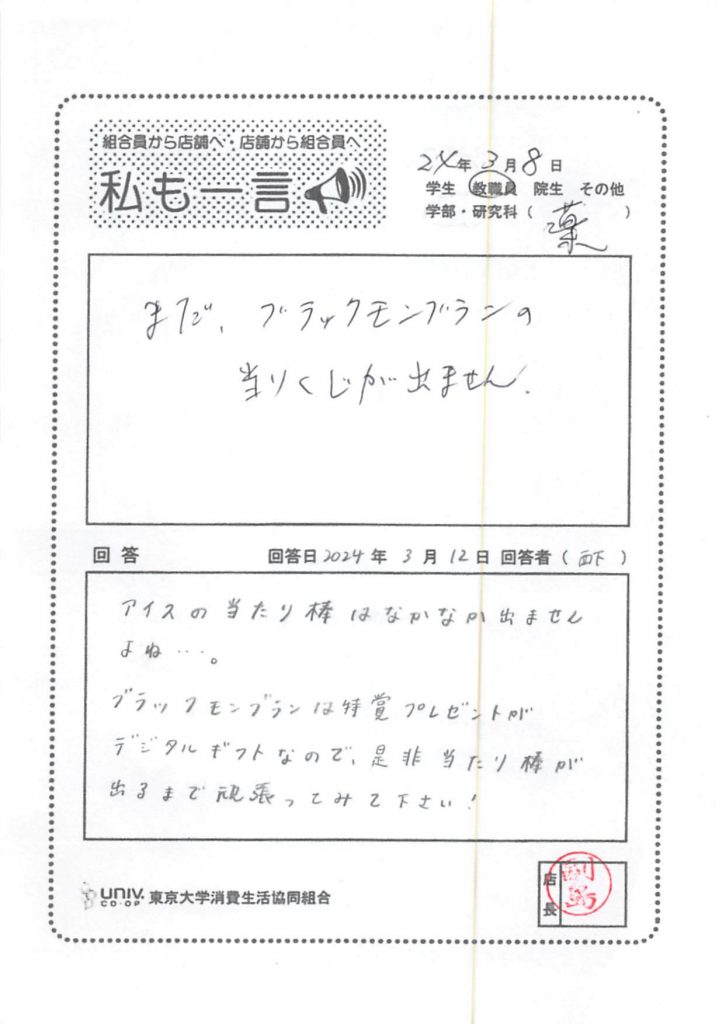 組合員から店舗へ・店舗から組合員へ
私も一言
24年 3月 8日
学生 教職員 院生 その他
学部・研究科 ( 薬 )
まだ、ブラックモンブランの
当りくじが出ません.
回答 回答日 2024年 3月 12日 回答者 ( 西下 )
アイスの当たり棒はなかなか出ません
よね…。
ブラックモンブランは特賞プレゼントが
デジタルギフトなので、是非当たり棒が
出るまで頑張ってみて下さい!
店長
UNIV. CO-OP 東京大学消費生活協同組合